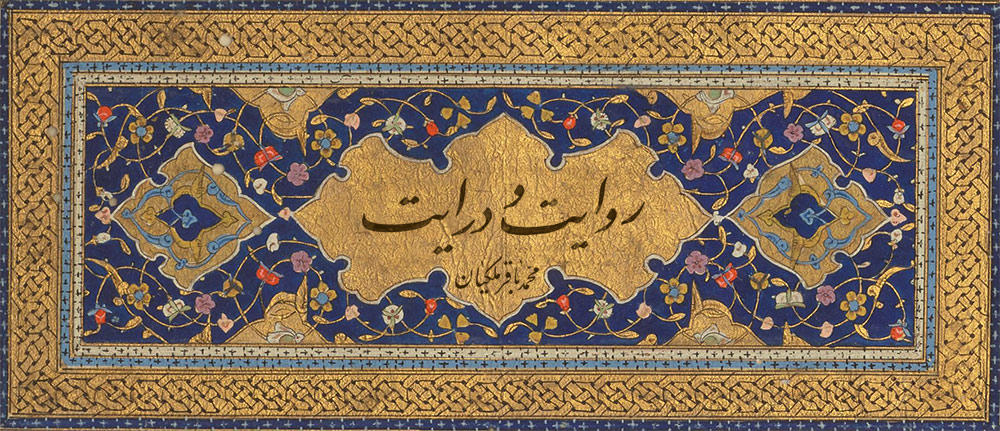 روایت و درایت
محمدباقر ملکیان